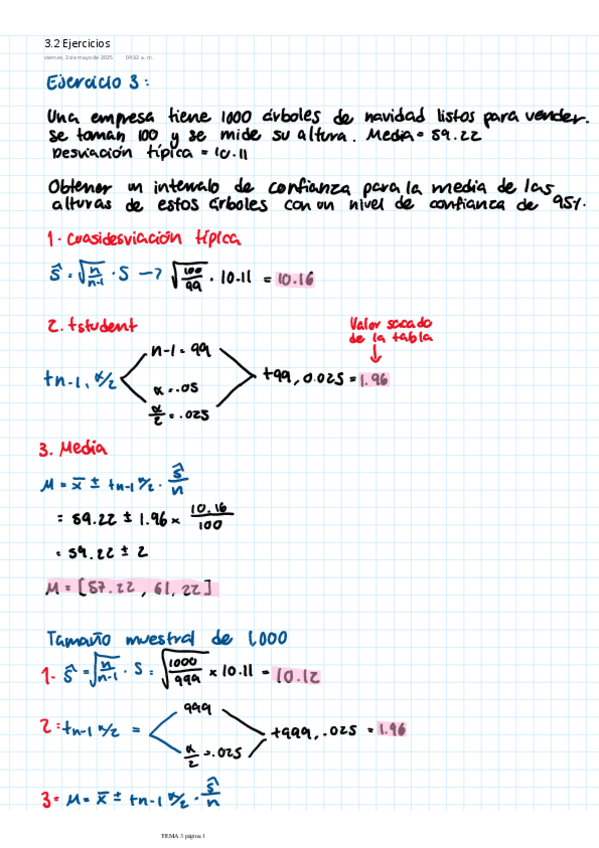 3.2 Ejercicios
viernes, 2 de mayo de 2025 04:32 a. m.
Ejercicio 3:
Una empresa tiene 1000 árboles de navidad listos para vender.
Se toman 100 y se mide su altura. Media= 59.22
Desviación típica = 10.11
Obtener un intervalo de confianza para la media de las
alturas de estos árboles con un nivel de confianza de 95%.
1. Cuasidesviación típica
ŝ = √n/n-1 · S → √100/99 · 10.11 = 10.16
2. tstudent
Valor sacado
de la tabla
tn-1, α/2
n-1 = 99
α = .05
α/2 = .025
t99, 0.025 = 1.96
3. Media
M = x̄ ± tn-1 α/2 · ŝ/n
= 59.22 ± 1.96 × 10.16/100
= 59.22 ± 2
M = [57.22, 61.22]
Tamaño muestral de 1,000
1. ŝ = √n/n-1 · S = √1000/999 × 10.11 = 10.12
2= tn-1 α/2 =
999
α/2 = .025
t999, .025 = 1.96
3= M = x̄ ± tn-1 α/2 · ŝ/n
TEMA 3 página 1